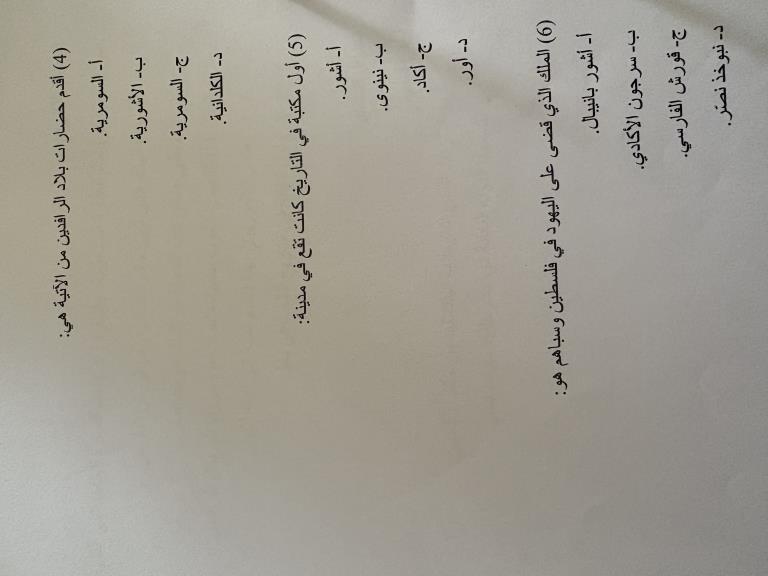 (4) أقدم حضارات بلاد الرافدين من الآتية هي:
أ- السومرية.
ب- الأشورية.
ج- السومرية.
د- الكلدانية.
(5) أول مكتبة في التاريخ كانت تقع في مدينة:
أ- أشور.
ب- نينوى.
ج- أكاد.
د- أور.
(6) الملك الذي قضى على اليهود في فلسطين وسباهم هو:
أ- أشور بانيبال.
ب- سرجون الأكادي.
ج- قورش الفارسي.
د- نبوخذ نصر.